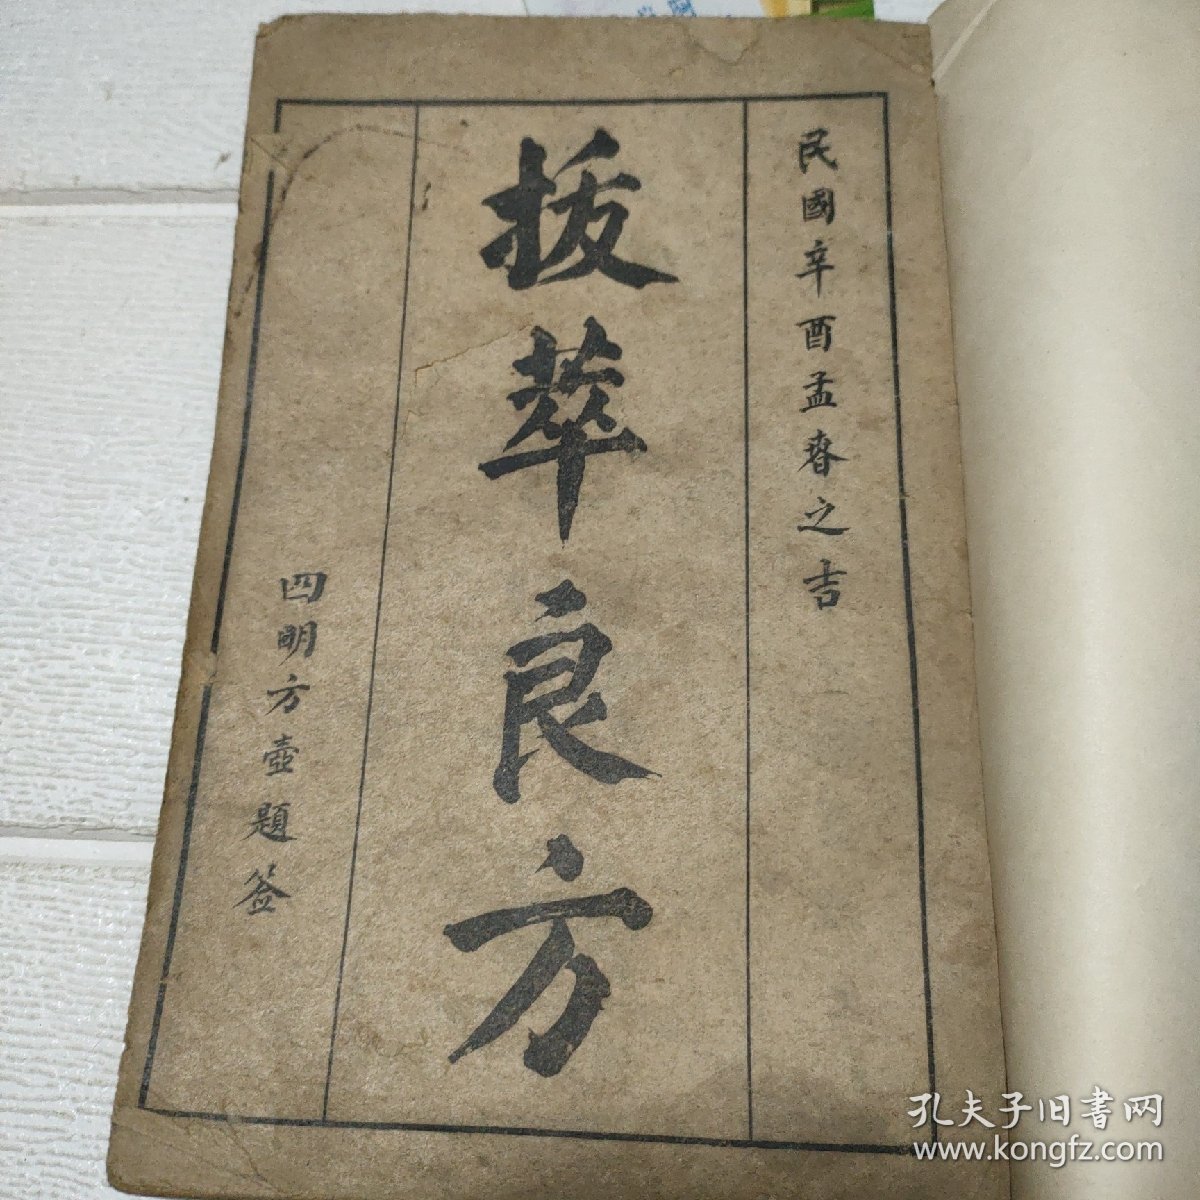 民國辛酉孟春之吉
拔萃良方
四明方壺題签
孔夫子旧書网
www.kongfz.com